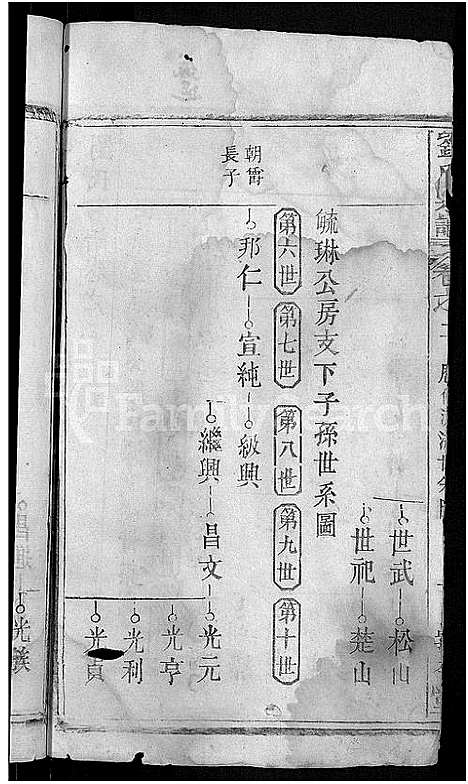 劉氏
世武 松山
世祀 楚山
毓琳公房支下子孫世系圖
第六世 第七世 第八世 第九世 第十世
朝霄
長子
邦仁 宣純 級興
繼興 昌文 光元
光亨
光利
光貞
FamilySearch